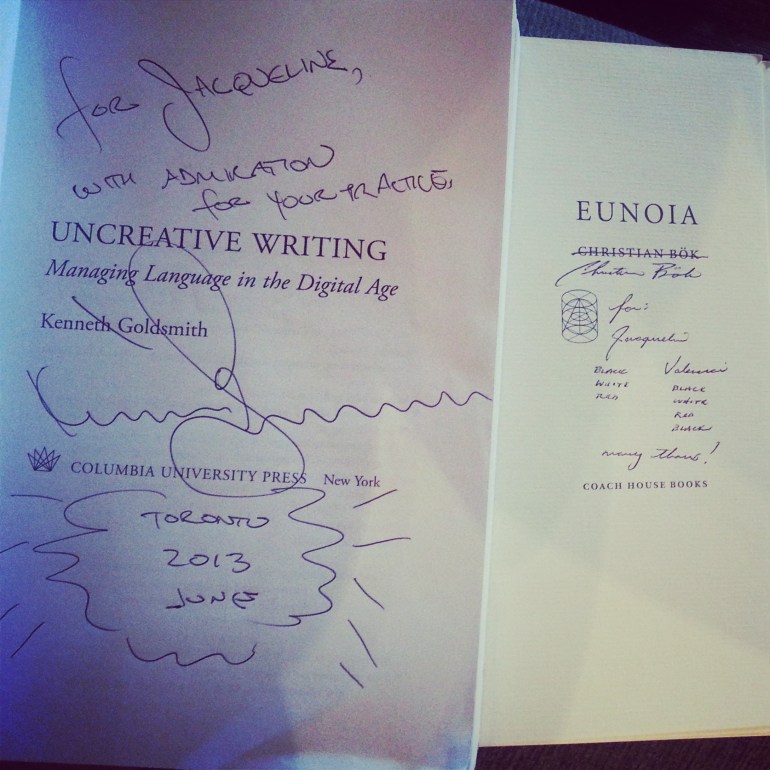 for Jacqueline,
WITH ADMIRATION
for YOUR PRACTICE,
UNCREATIVE WRITING
Managing Language in the Digital Age
Kenneth Goldsmith
COLUMBIA UNIVERSITY PRESS New York
TORONTO
2013
JUNE
EUNOIA
CHRISTIAN BÖK
Christian Bök
for:
Jacqueline
Valencia
BLACK
WHITE
RED
BLACK
WHITE
RED
BLACK
many thanx!
COACH HOUSE BOOKS